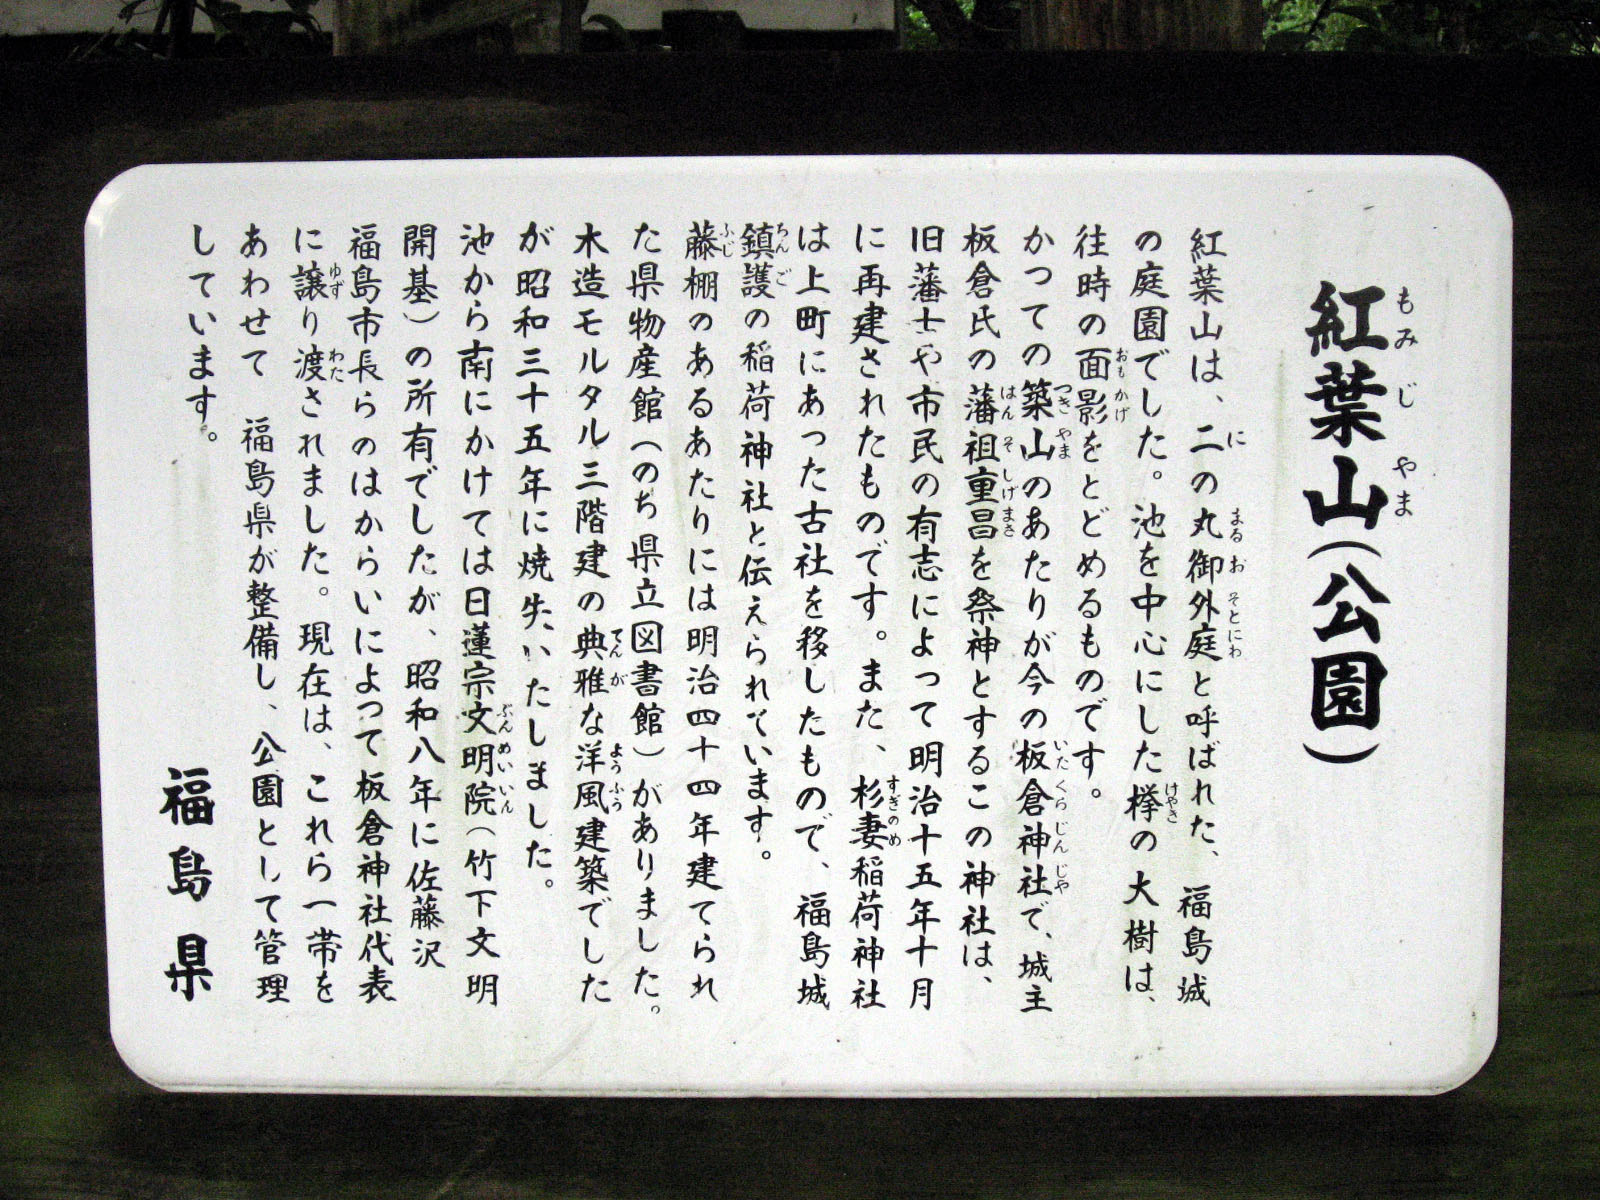 紅葉山(公園)
もみじやま
紅葉山は、二の丸御外庭と呼ばれた、福島城
の庭園でした。池を中心にした欅の大樹は、
往時の面影をとどめるものです。
かつての築山のあたりが今の板倉神社で、城主
板倉氏の藩祖重昌を祭神とするこの神社は、
旧藩士や市民の有志によって明治十五年十月
に再建されたものです。また、杉妻稲荷神社
は上町にあった古社を移したもので、福島城
鎮護の稲荷神社と伝えられています。
藤棚のあるあたりには明治四十四年建てられ
た県物産館(のち県立図書館)がありました。
木造モルタル三階建の典雅な洋風建築でした
が昭和三十五年に焼失いたしました。
池から南にかけては日蓮宗文明院(竹下文明
開基)の所有でしたが、昭和八年に佐藤沢
福島市長らのはからいによって板倉神社代表
に譲り渡されました。現在は、これら一帯を
あわせて 福島県が整備し、公園として管理
しています。
福島県